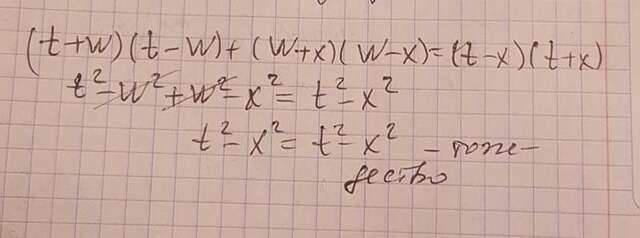 (t+w)(t-w)+(w+x)(w-x)=(t-x)(t+x)
t²-w²+w²-x²=t²-x²
t²-x²=t²-x² - тоже-
дество